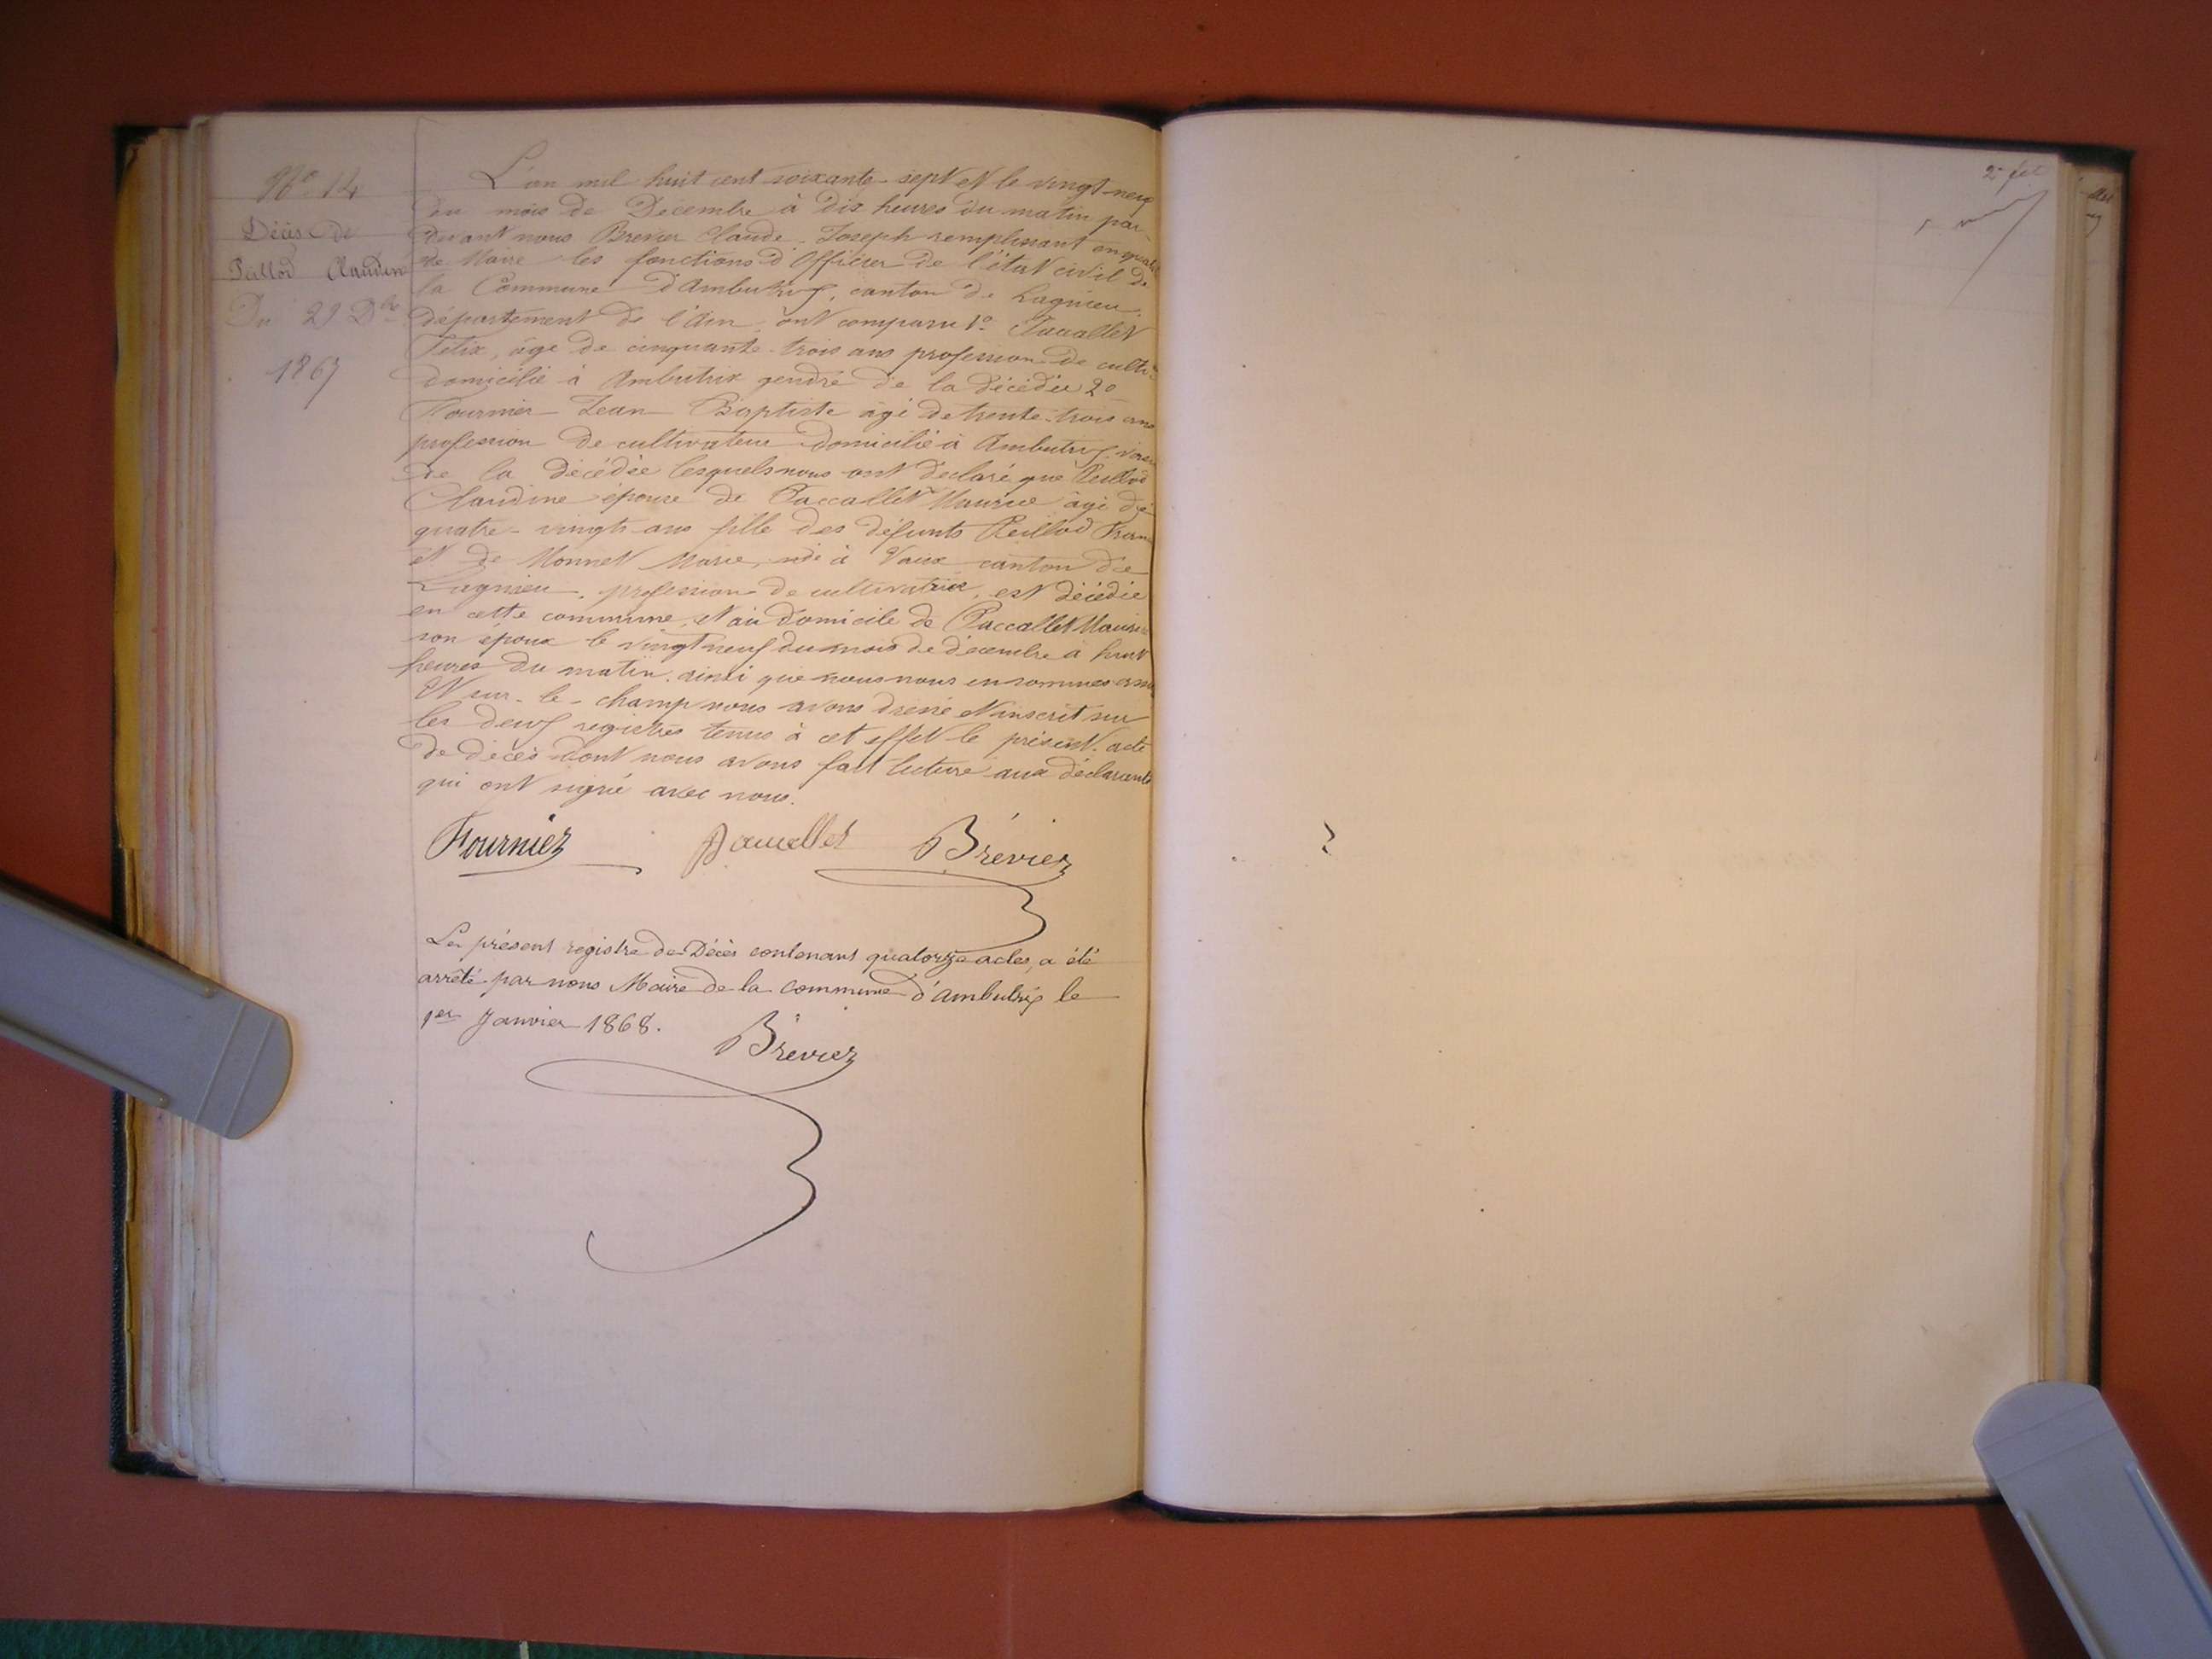 N° 14
Décès de
Peillod Claudine
Du 29 Dbre
1867
L'an mil huit cent soixante-sept et le vingt-neuf
du mois de Décembre à dix heures du matin par-
devant nous Brevier Claude-Joseph remplissant en qualité
de Maire les fonctions d'Officier de l'état civil de
la Commune d'Ambutrix, canton de Lagnieu,
département de l'Ain, ont comparu 1° Paccallet
Félix, âgé de cinquante-trois ans profession de cultiv
domicilié à Ambutrix gendre de la décédée 2°
Fournier Jean-Baptiste âgé de trente-trois ans
profession de cultivateur domicilié à Ambutrix voisin
de la décédée lesquels nous ont déclaré que Peillod
Claudine épouse de Paccallet Maurice âgé de
quatre-vingts ans fille des défunts Peillod Fran
et de Monnet Marie, née à Vaux canton de
Lagnieu, profession de cultivatrice, est décédée
en cette commune, et au domicile de Paccallet Maurice
son époux le vingt neuf du mois de décembre à huit
heures du matin, ainsi que nous nous en sommes
Et sur-le-champ nous avons dressé et inscrit sur
les deux registres tenus à cet effet le présent acte
de décès dont nous avons fait lecture aux déclarants
qui ont signé avec nous.
Fournier Paccallet Brévier
Le présent registre de Décès contenant quatorze actes, a été
arrêté par nous Maire de la commune d'Ambutrix le
1er Janvier 1868.
Brevier